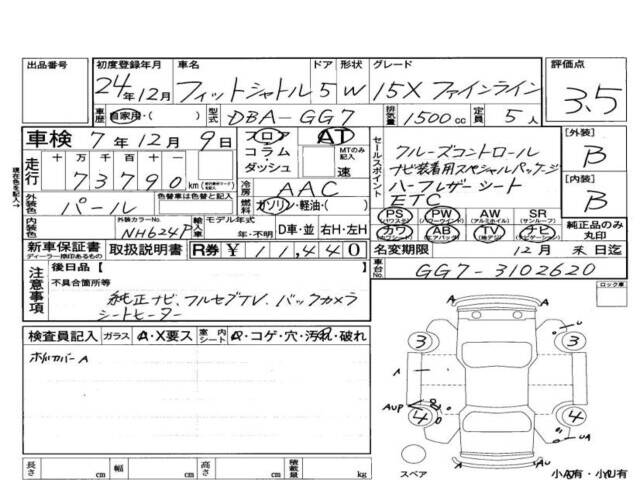 出品番号 初度登録年月 車名 ドア 形状 グレード 評価点
24年12月 フィットシャトル 5 W 15X ファインライン 3.5
車歴 自家用・( ) 型式 DBA-GG7 排気量 1500cc 定員 5人
車検 7年12月9日 スロア・コラム・ダッシュ AT MTのみ記入 速
現在色を記入→
走行 十万千百十 73790 km
冷房 AAC
燃料 ガソリン・軽油・( )
外装色 パール 色替車は色替と記入
内装色 外装カラーNo. NH624P 輸入車 モデル年式 年・不明 D車・並 右H・左H
セールスポイント
クルーズコントロール
ナビ装着用スペシャルパッケージ
ハーフレザーシート
ETC
PS (パワステ) PW (パワーウインド) AW (アルミホイル) SR (サンルーフ)
カワ AB (エアバック) TV ナビ (ナビゲーション)
[外装] B
[内装] B
純正品のみ丸印
新車保証書 ディーラー捺印あるもの 取扱説明書 R券 ¥11,440
名変期限 12月末日迄
車台No. GG7-3102620
注意事項 後日品 [ ]
不具合箇所等
純正ナビ、フルセグTV、バックカメラ
シートヒーター
ロック車
検査員記入 ガラス A・X要ス 室内シート A・コゲ・穴・汚れ・破れ
ホイルカバーA
3 3
A
AUP
4 4
UA
AU
スペア
小A有・小U有
長さ cm 幅 cm 高さ cm 積載量 kg